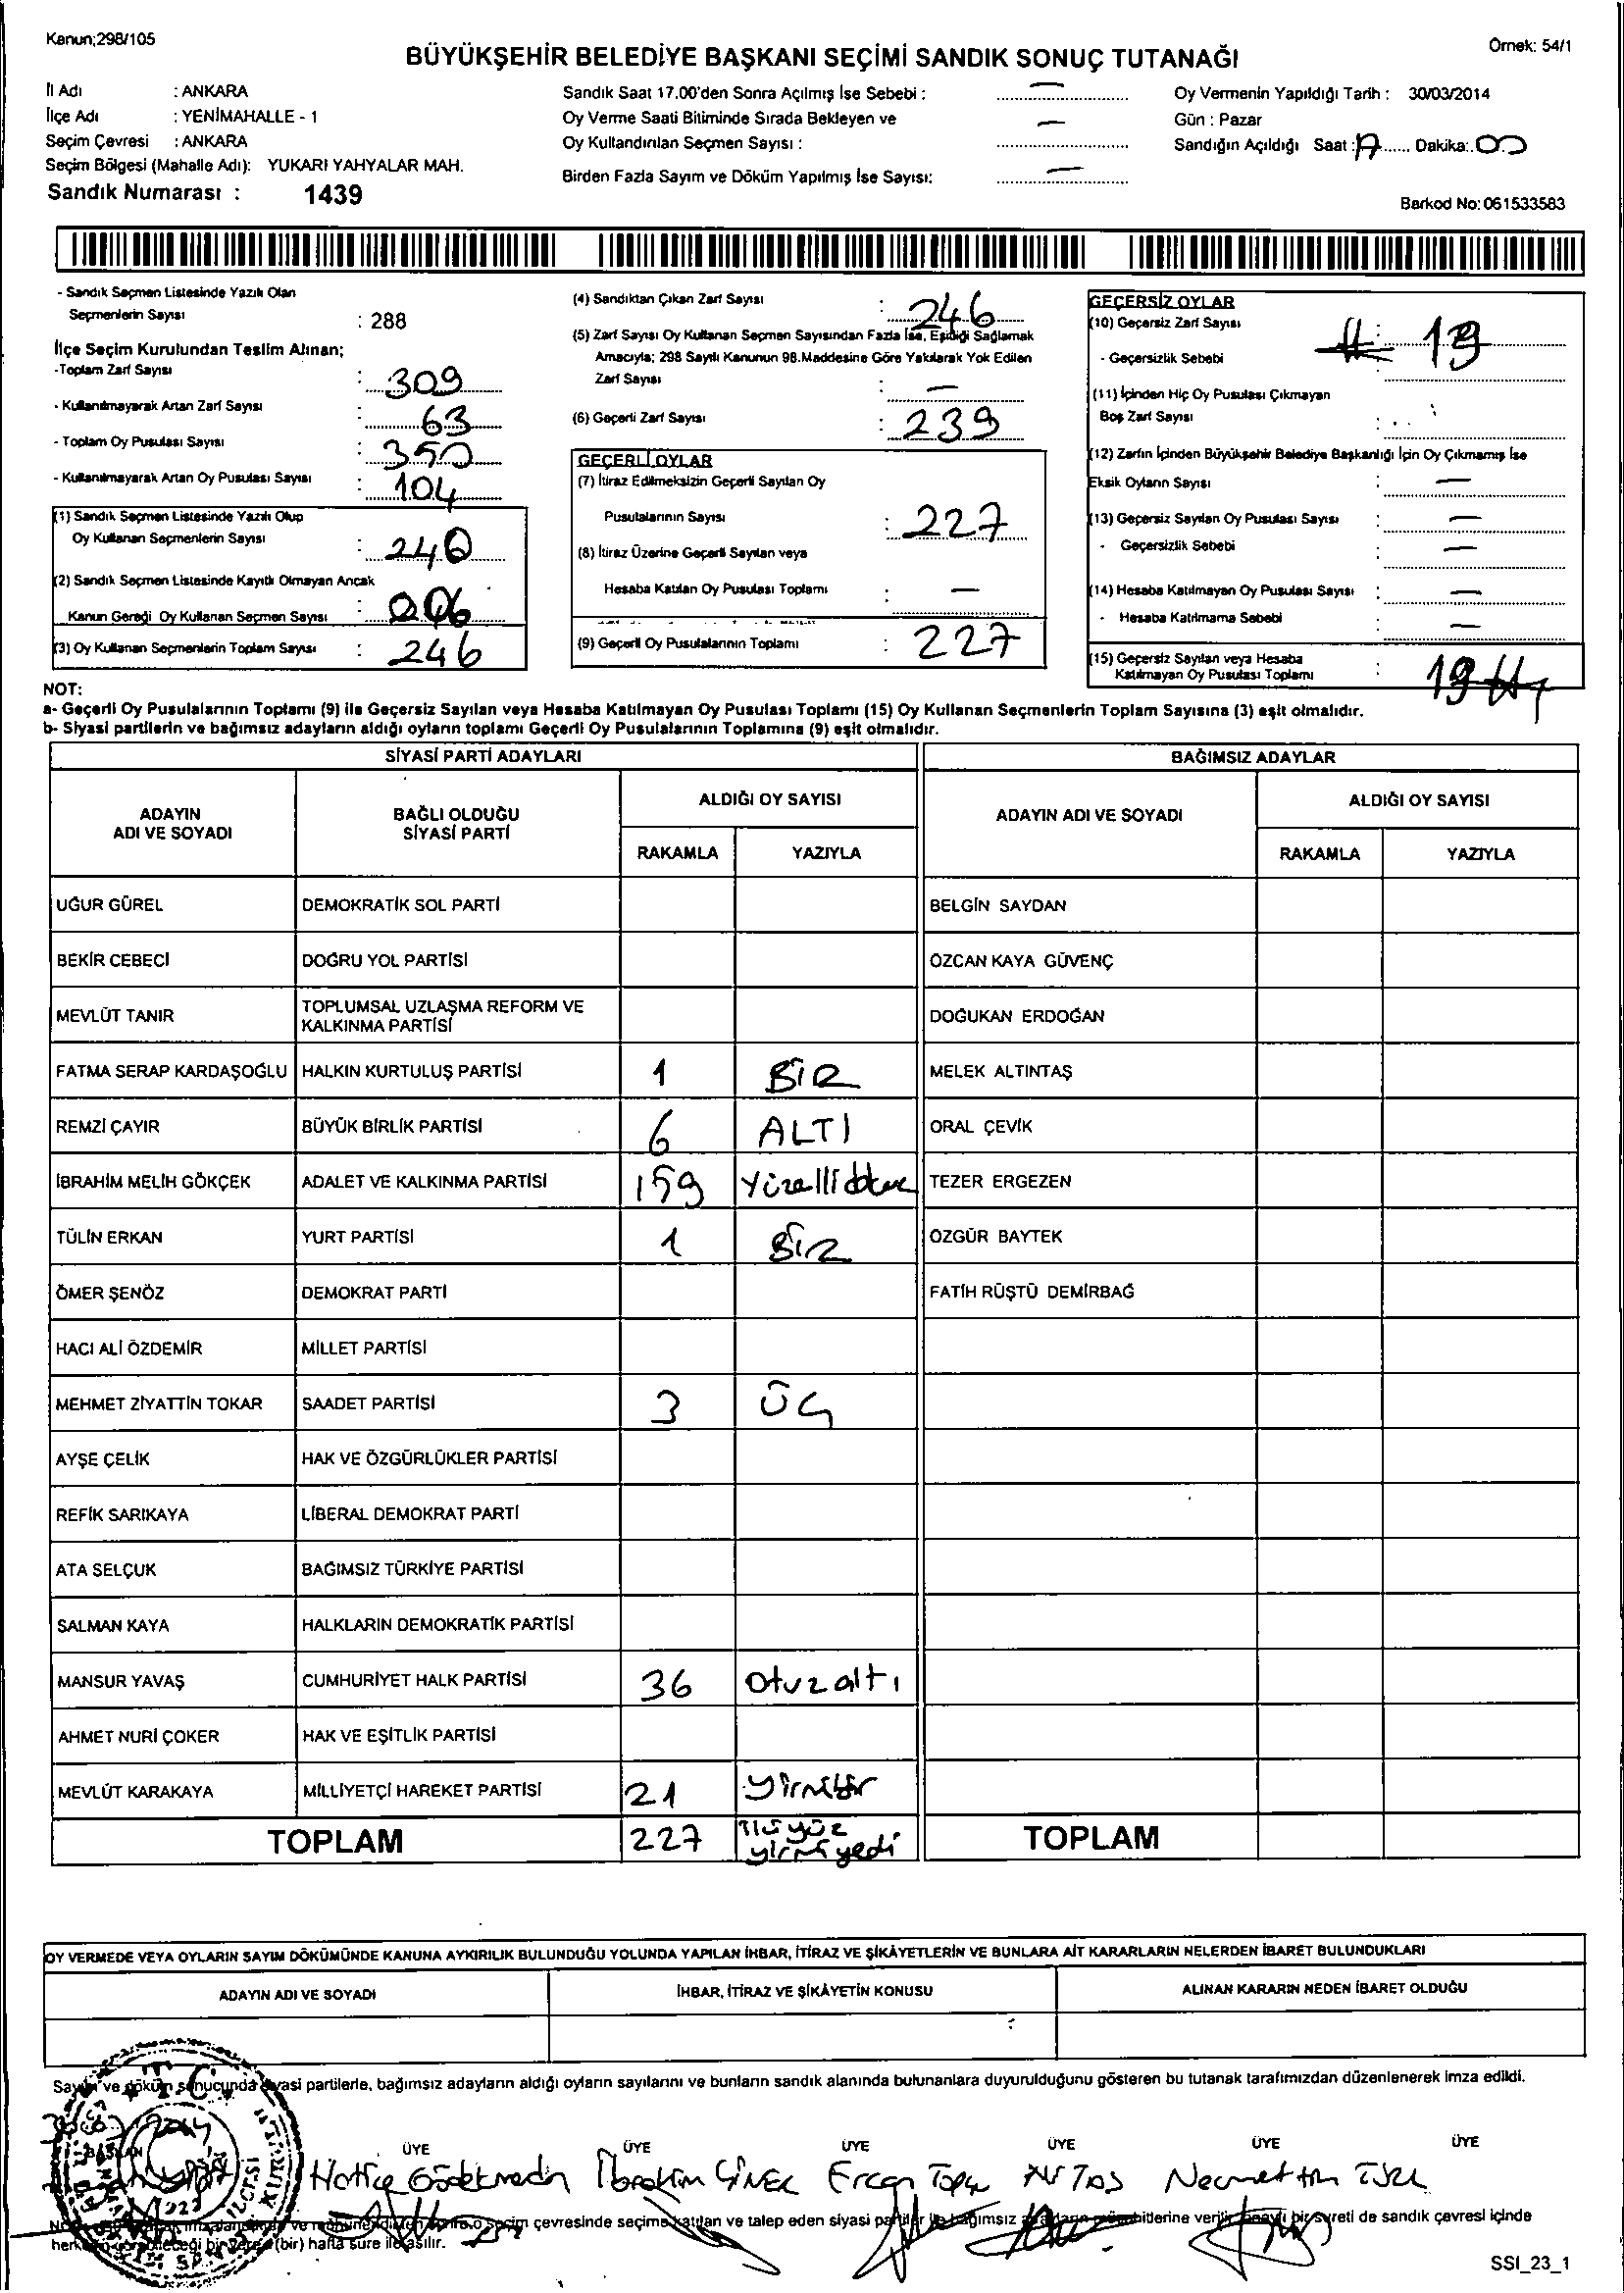 Kanun;298/105
Örnek: 54/1
BÜYÜKŞEHİR BELEDİYE BAŞKANI SEÇİMİ SANDIK SONUÇ TUTANAĞI
İl Adı : ANKARA
İlçe Adı : YENİMAHALLE - 1
Seçim Çevresi : ANKARA
Seçim Bölgesi (Mahalle Adı): YUKARI YAHYALAR MAH.
Sandık Numarası : 1439
Sandık Saat 17.00'den Sonra Açılmış İse Sebebi : —
Oy Verme Saati Bitiminde Sırada Bekleyen ve —
Oy Kullandırılan Seçmen Sayısı :
Birden Fazla Sayım ve Döküm Yapılmış İse Sayısı: —
Oy Vermenin Yapıldığı Tarih : 30/03/2014
Gün : Pazar
Sandığın Açıldığı Saat : 17 Dakika: 00
Barkod No: 061533583
- Sandık Seçmen Listesinde Yazılı Olan
Seçmenlerin Sayısı : 288
İlçe Seçim Kurulundan Teslim Alınan;
-Toplam Zarf Sayısı : 309
- Kullanılmayarak Artan Zarf Sayısı : 63
- Toplam Oy Pusulası Sayısı : 350
- Kullanılmayarak Artan Oy Pusulası Sayısı : 104
(1) Sandık Seçmen Listesinde Yazılı Olup
Oy Kullanan Seçmenlerin Sayısı : 240
(2) Sandık Seçmen Listesinde Kayıtlı Olmayan Ancak
Kanun Gereği Oy Kullanan Seçmen Sayısı :
(3) Oy Kullanan Seçmenlerin Toplam Sayısı : 246
(4) Sandıktan Çıkan Zarf Sayısı : 246
(5) Zarf Sayısı Oy Kullanan Seçmen Sayısından Fazla İse, Eşitliği Sağlamak
Amacıyla; 298 Sayılı Kanunun 98.Maddesine Göre Yakılarak Yok Edilen
Zarf Sayısı : —
(6) Geçerli Zarf Sayısı : 239
GEÇERLİ OYLAR
(7) İtiraz Edilmeksizin Geçerli Sayılan Oy
Pusulalarının Sayısı : 227
(8) İtiraz Üzerine Geçerli Sayılan veya
Hesaba Katılan Oy Pusulası Toplamı : —
(9) Geçerli Oy Pusulalarının Toplamı : 227
GEÇERSİZ OYLAR
(10) Geçersiz Zarf Sayısı : 19
- Geçersizlik Sebebi
(11) İçinden Hiç Oy Pusulası Çıkmayan
Boş Zarf Sayısı :
(12) Zarfın İçinden Büyükşehir Belediye Başkanlığı İçin Oy Çıkmamış İse
Eksik Oyların Sayısı : —
(13) Geçersiz Sayılan Oy Pusulası Sayısı : —
- Geçersizlik Sebebi : —
(14) Hesaba Katılmayan Oy Pusulası Sayısı : —
- Hesaba Katılmama Sebebi : —
(15) Geçersiz Sayılan veya Hesaba
Katılmayan Oy Pusulası Toplamı : 19
NOT:
a- Geçerli Oy Pusulalarının Toplamı (9) ile Geçersiz Sayılan veya Hesaba Katılmayan Oy Pusulası Toplamı (15) Oy Kullanan Seçmenlerin Toplam Sayısına (3) eşit olmalıdır.
b- Siyasi partilerin ve bağımsız adayların aldığı oyların toplamı Geçerli Oy Pusulalarının Toplamına (9) eşit olmalıdır.
SİYASİ PARTİ ADAYLARI
BAĞIMSIZ ADAYLAR
ADAYIN ADI VE SOYADI
BAĞLI OLDUĞU SİYASİ PARTİ
ALDIĞI OY SAYISI
RAKAMLA YAZIYLA
ADAYIN ADI VE SOYADI
ALDIĞI OY SAYISI
RAKAMLA YAZIYLA
UĞUR GÜREL DEMOKRATİK SOL PARTİ BELGİN SAYDAN
BEKİR CEBECİ DOĞRU YOL PARTİSİ ÖZCAN KAYA GÜVENÇ
MEVLÜT TANIR TOPLUMSAL UZLAŞMA REFORM VE KALKINMA PARTİSİ DOĞUKAN ERDOĞAN
FATMA SERAP KARDAŞOĞLU HALKIN KURTULUŞ PARTİSİ 1 BİR MELEK ALTINTAŞ
REMZİ ÇAYIR BÜYÜK BİRLİK PARTİSİ 6 ALTI ORAL ÇEVİK
İBRAHİM MELİH GÖKÇEK ADALET VE KALKINMA PARTİSİ 159 Yüzelli dokuz TEZER ERGEZEN
TÜLİN ERKAN YURT PARTİSİ 1 BİR ÖZGÜR BAYTEK
ÖMER ŞENÖZ DEMOKRAT PARTİ FATİH RÜŞTÜ DEMİRBAĞ
HACI ALİ ÖZDEMİR MİLLET PARTİSİ
MEHMET ZİYATTİN TOKAR SAADET PARTİSİ 3 ÜÇ
AYŞE ÇELİK HAK VE ÖZGÜRLÜKLER PARTİSİ
REFİK SARIKAYA LİBERAL DEMOKRAT PARTİ
ATA SELÇUK BAĞIMSIZ TÜRKİYE PARTİSİ
SALMAN KAYA HALKLARIN DEMOKRATİK PARTİSİ
MANSUR YAVAŞ CUMHURİYET HALK PARTİSİ 36 otuz altı
AHMET NURİ ÇOKER HAK VE EŞİTLİK PARTİSİ
MEVLÜT KARAKAYA MİLLİYETÇİ HAREKET PARTİSİ 21 yirmibir
TOPLAM 227 ikiyüz yirmiyedi TOPLAM
OY VERMEDE VEYA OYLARIN SAYIM DÖKÜMÜNDE KANUNA AYKIRILIK BULUNDUĞU YOLUNDA YAPILAN İHBAR, İTİRAZ VE ŞİKÂYETLERİN VE BUNLARA AİT KARARLARIN NELERDEN İBARET BULUNDUKLARI
ADAYIN ADI VE SOYADI İHBAR, İTİRAZ VE ŞİKÂYETİN KONUSU ALINAN KARARIN NEDEN İBARET OLDUĞU
Sayım ve döküm sonucunda siyasi partilerle, bağımsız adayların aldığı oyların sayılarını ve bunların sandık alanında bulunanlara duyurulduğunu gösteren bu tutanak tarafımızdan düzenlenerek imza edildi.
T.C.
BAŞKAN ÜYE ÜYE ÜYE ÜYE ÜYE ÜYE
Hatice İbrahim Ercan Necmettin
seçim çevresinde seçime katılan ve talep eden siyasi partiler ile bağımsız sureti de sandık çevresi içinde
(bir) hafta süre ile asılır.
SSI_23_1